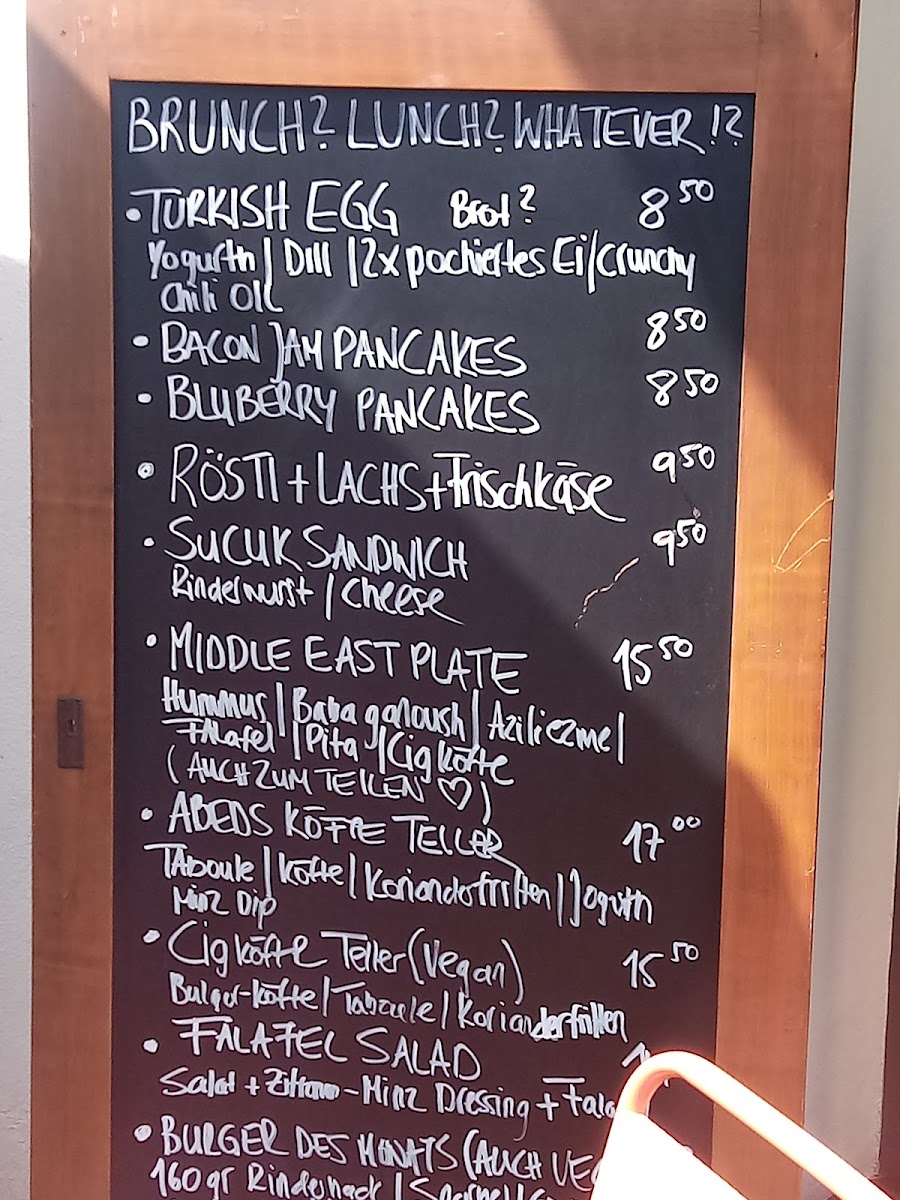 BRUNCH? LUNCH? WHATEVER!?
• TURKISH EGG Brot? 8 50
Yogurth | Dill | 2x pochiertes Ei / crunchy
Chili OIL
• BACON JAM PANCAKES 8 50
• BLUBERRY PANCAKES 8 50
• RÖSTI + LACHS + Frischkäse 9 50
• SUCUK SANDWICH 9 50
Rinderwurst / Cheese
• MIDDLE EAST PLATE 15 50
Hummus | Baba ganoush | Aziliezme |
Falafel | Pita | Cigköfte
(AUCH ZUM TEILEN ♡)
• ABEDS KÖFTE TELLER 17 00
Taboule | Köfte | Korianderfritten | Joguth
Minz Dip
• Cigköfte Teller (Vegan) 15 50
Bulgur-Köfte | Taboule | Korianderfritten
• FALAFEL SALAD
Salat + Zitrone-Minz Dressing +
• BURGER DES MONATS (AUCH
160 gr Rinderhack |